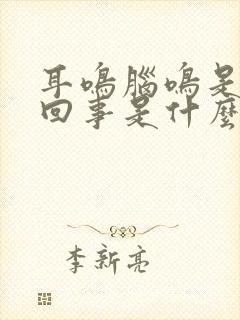 耳鳴腦鳴是
回事是什麼
李新亮